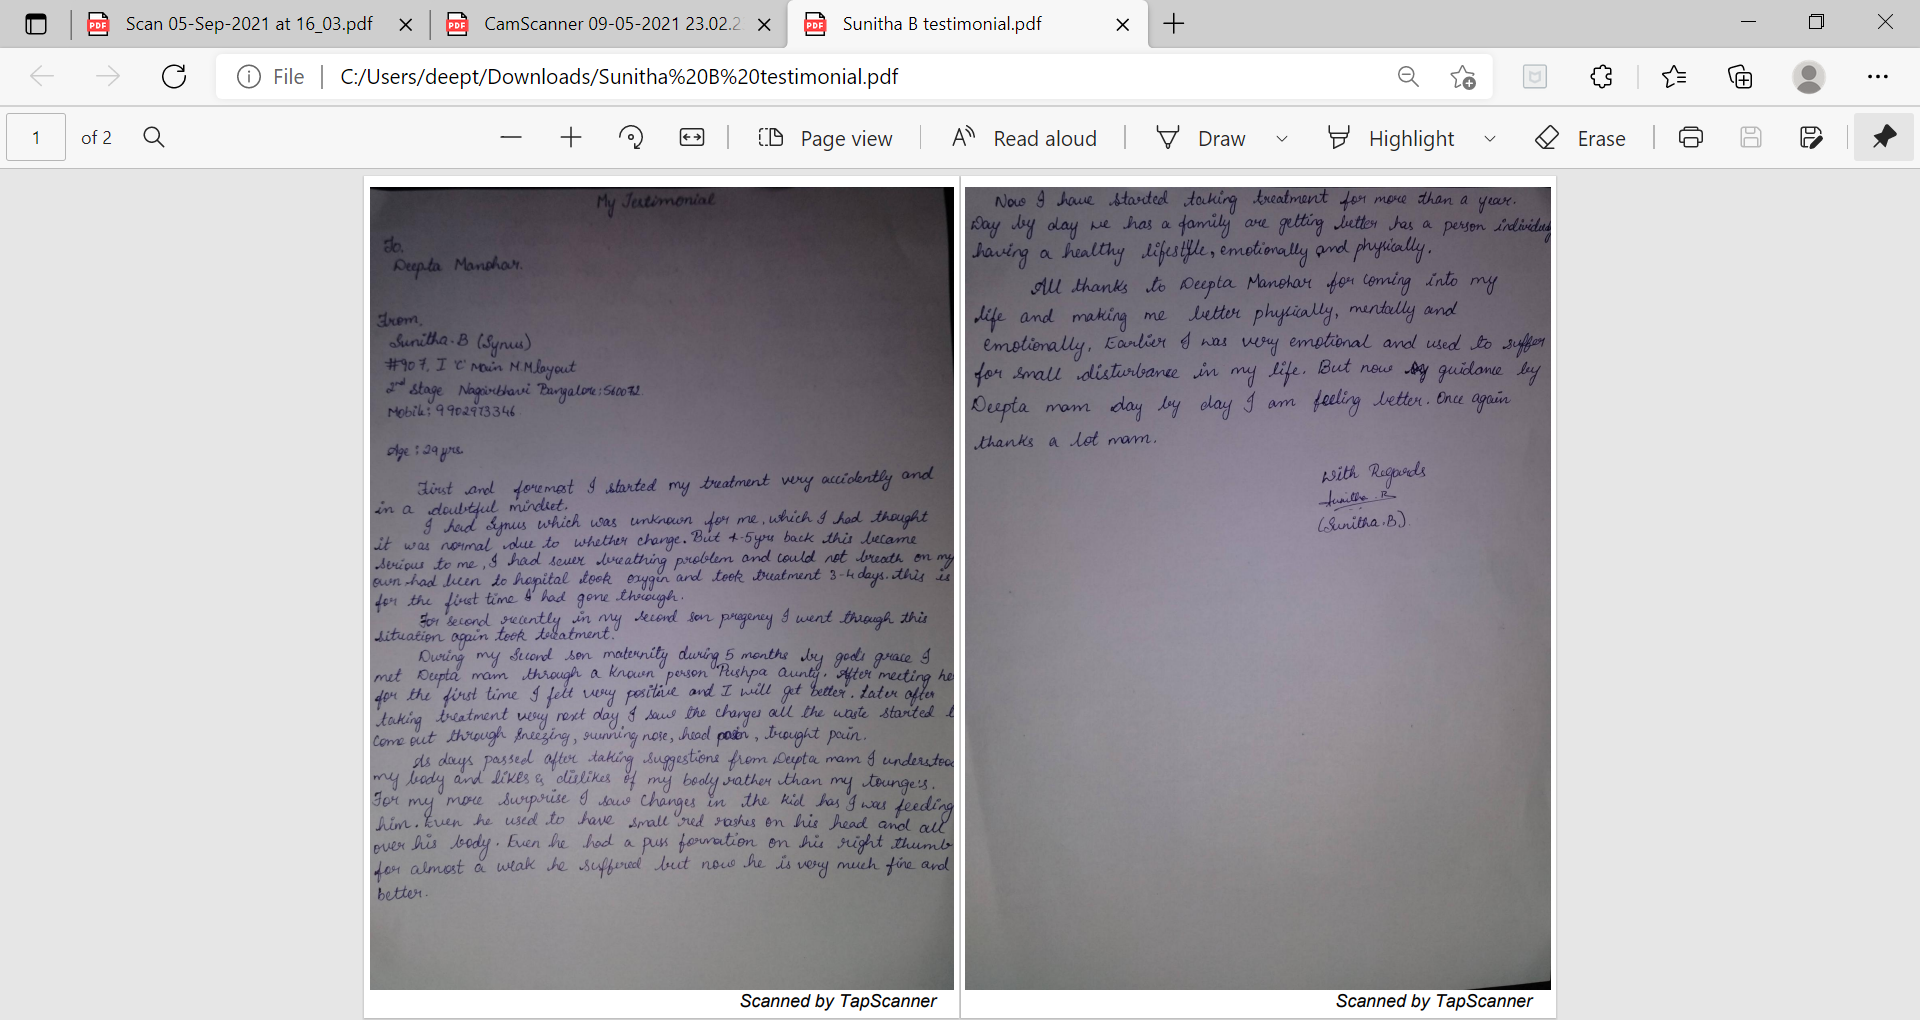 Scan 05-Sep-2021 at 16_03.pdf
CamScanner 09-05-2021 23.02.2
Sunitha B testimonial.pdf
File
C:/Users/deept/Downloads/Sunitha%20B%20testimonial.pdf
1 of 2
Page view
Read aloud
Draw
Highlight
Erase
My Testimonial
To,
Deepta Manohar.
From,
Sunitha.B (Synus)
#907, I 'C' Main N.M layout
2nd Stage Nagarbhavi Bangalore:560072
Mobile: 9902973346
Age : 29 yrs
First and foremost I started my treatment very accidently and
in a doubtful mindset.
I had Synus which was unknown for me, which I had thought
it was normal due to whether change. But 4-5yrs back this became
serious to me, I had sever breathing problem and could not breath on my
own had been to hospital took oxygin and took treatment 3-4 days. this is
for the first time I had gone through.
For second recently in my second son pregency I went through this
situation again took treatment.
During my second son maternity during 5 months by gods grace I
met Deepta mam through a known person Pushpa Aunty. After meeting he
for the first time I felt very positive and I will get better. Later after
taking treatment very next day I saw the changes all the waste started t
come out through sneezing, running nose, head pain, trought pain.
As days passed after taking suggestions from Deepta mam I understood
my body and likes & dislikes of my body rather than my tounge's.
For my more surprise I saw changes in the kid has I was feeding
him. Even he used to have small red rashes on his head and all
over his body. Even he had a puss formation on his right thumb
for almost a weak he suffered but now he is very much fine and
better.
Scanned by TapScanner
Now I have started taking treatment for more than a year.
Day by day we has a family are getting better has a person individual
having a healthy lifestyle, emotionally and physically.
All thanks to Deepta Manohar for coming into my
life and making me better physically, mentally and
emotionally, Earlier I was very emotional and used to suffer
for small disturbance in my life. But now guidance by
Deepta mam day by day I am feeling better. Once again
thanks a lot mam.
With Regards
Sunitha.B
(Sunitha.B)
Scanned by TapScanner